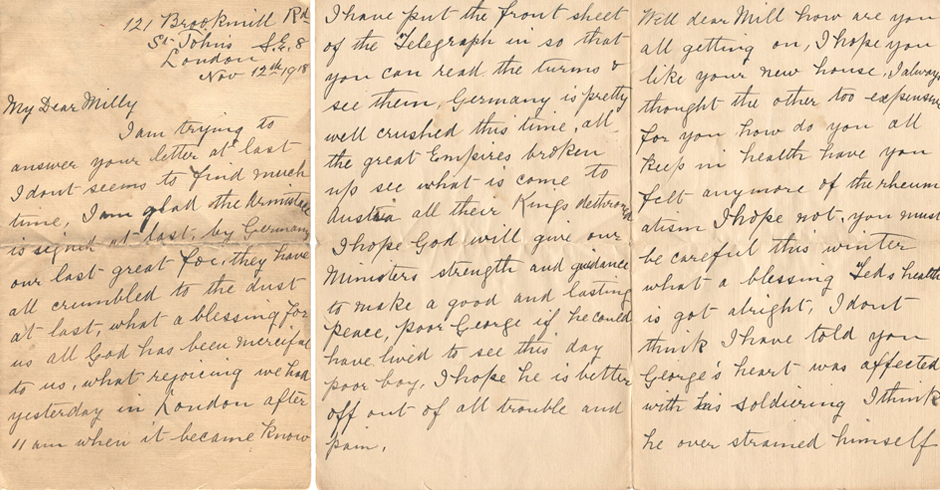 121 Brookmill Rd
St Johns S.E.8
London
Nov 12th 1918
My Dear Milly
I am trying to
answer your letter at last
I dont seems to find much
time, I am glad the Armistice
is signed at last, by Germany
our last great foe, they have
all crumbled to the dust
at last, what a blessing for
us all God has been merciful
to us, what rejoicing we had
yesterday in London after
11 am when it became know
I have put the front sheet
of the Telegraph in so that
you can read the turms &
see them, Germany is pretty
well crushed this time, all
the great Empires broken
up see what is come to
Austria all their Kings dethroned
I hope God will give our
Ministers strength and guidance
to make a good and lasting
peace, poor George if he could
have lived to see this day
poor boy, I hope he is better
off out of all trouble and
pain.
Well dear Mill how are you
all getting on, I hope you
like your new house, I always
thought the other too expensive
for you, how do you all
keep in health have you
felt anymore of the rheum
atism I hope not, you must
be careful this winter
what a blessing Teds health
is got alright, I dont
think I have told you
George's heart was affected
with his soldiering I think
he over strained himself